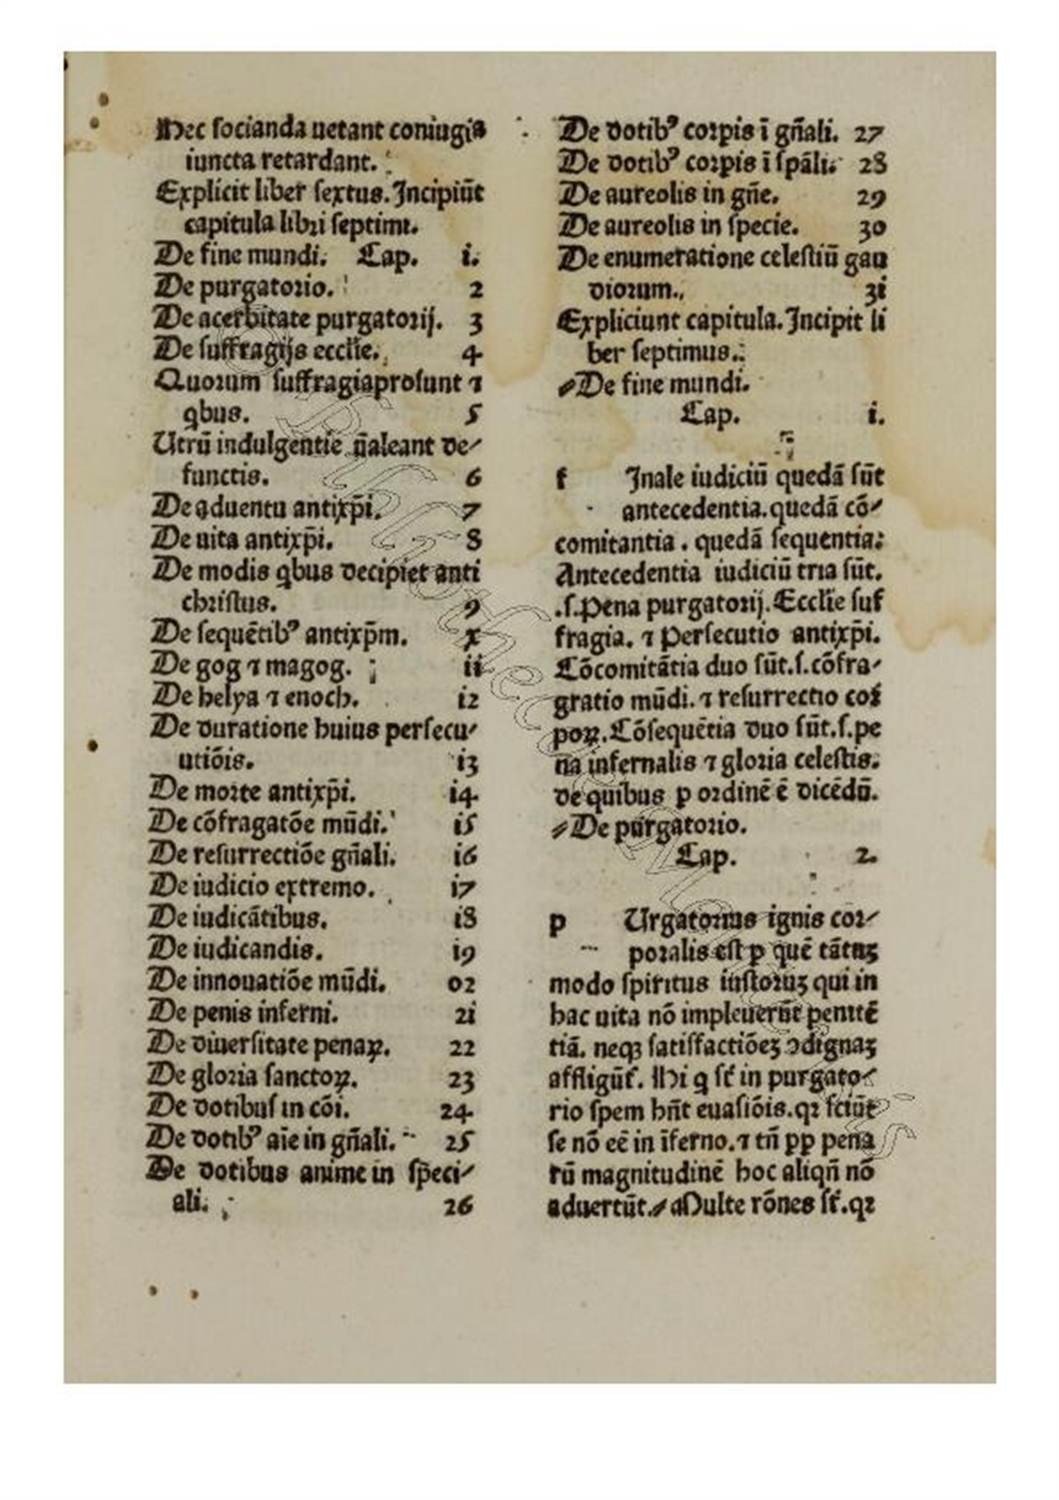 Hec socianda uetant coniugia
iuncta retardant.
Explicit liber sextus. Incipiūt
capitula libri septimi.
De fine mundi. Cap. i.
De purgatorio. 2
De acerbitate purgatorij. 3
De suffragijs ecclīe. 4
Quorum suffragiaprosunt ⁊
qbus. 5
Utrū indulgentie ualeant de⸗
functis. 6
De aduentu antixp̄i. 7
De uita antixp̄i. 8
De modis qbus decipiet anti
christus. 9
De sequētibꝰ antixp̄m. x
De gog ⁊ magog. ii
De helya ⁊ enoch. i2
De duratione huius persecu⸗
utiōis. i3
De morte antixp̄i. i4
De cōfragatōe mūdi. i5
De resurrectiōe gn̄ali. i6
De iudicio extremo. i7
De iudicātibus. i8
De iudicandis. i9
De innouatiōe mūdi. 02
De penis inferni. 2i
De diuersitate penaꝝ. 22
De gloria sanctoꝝ. 23
De dotibus in cōi. 24
De dotibꝰ aīe in gn̄ali. 25
De dotibus anime in speci⸗
ali. 26
De dotibꝰ corpis ī gn̄ali. 27
De dotibꝰ corpis ī spāli. 28
De aureolis in gn̄e. 29
De aureolis in specie. 30
De enumeratione celestiū gau
diorum. 3i
Expliciunt capitula. Incipit li
ber septimus.
De fine mundi.
Cap. i.
f Inale iudiciū quedā sūt
antecedentia. quedā cō⸗
comitantia. quedā sequentia:
Antecedentia iudiciū tria sūt.
.s. Pena purgatorij. Ecclīe suf
fragia. ⁊ Persecutio antixp̄i.
Cōcomitātia duo sūt. s. cōfra⸗
gratio mūdi. ⁊ resurrectio cor
poꝝ. Cōsequētia duo sūt. s. pe
na infernalis ⁊ gloria celestis.
de quibus p ordinē ē dicēdū.
De purgatorio.
Cap. 2.
p Urgatorius ignis cor⸗
poralis est p quē tātuꝫ
modo spiritus iustoruꝫ qui in
hac uita nō impleuerūt penitē
tiā. neqꝫ satisfactiōeꝫ ꝯdignaꝫ
affligūt. Hi q st̄ in purgato⸗
rio spem hn̄t euasiōis. qꝛ sciūt
se nō eē in īferno. ⁊ tn̄ pp pena
rū magnitudinē hoc aliqn̄ nō
aduertūt. Multe rōnes st̄. qꝛ
Bibliotheca Nacional de Paris